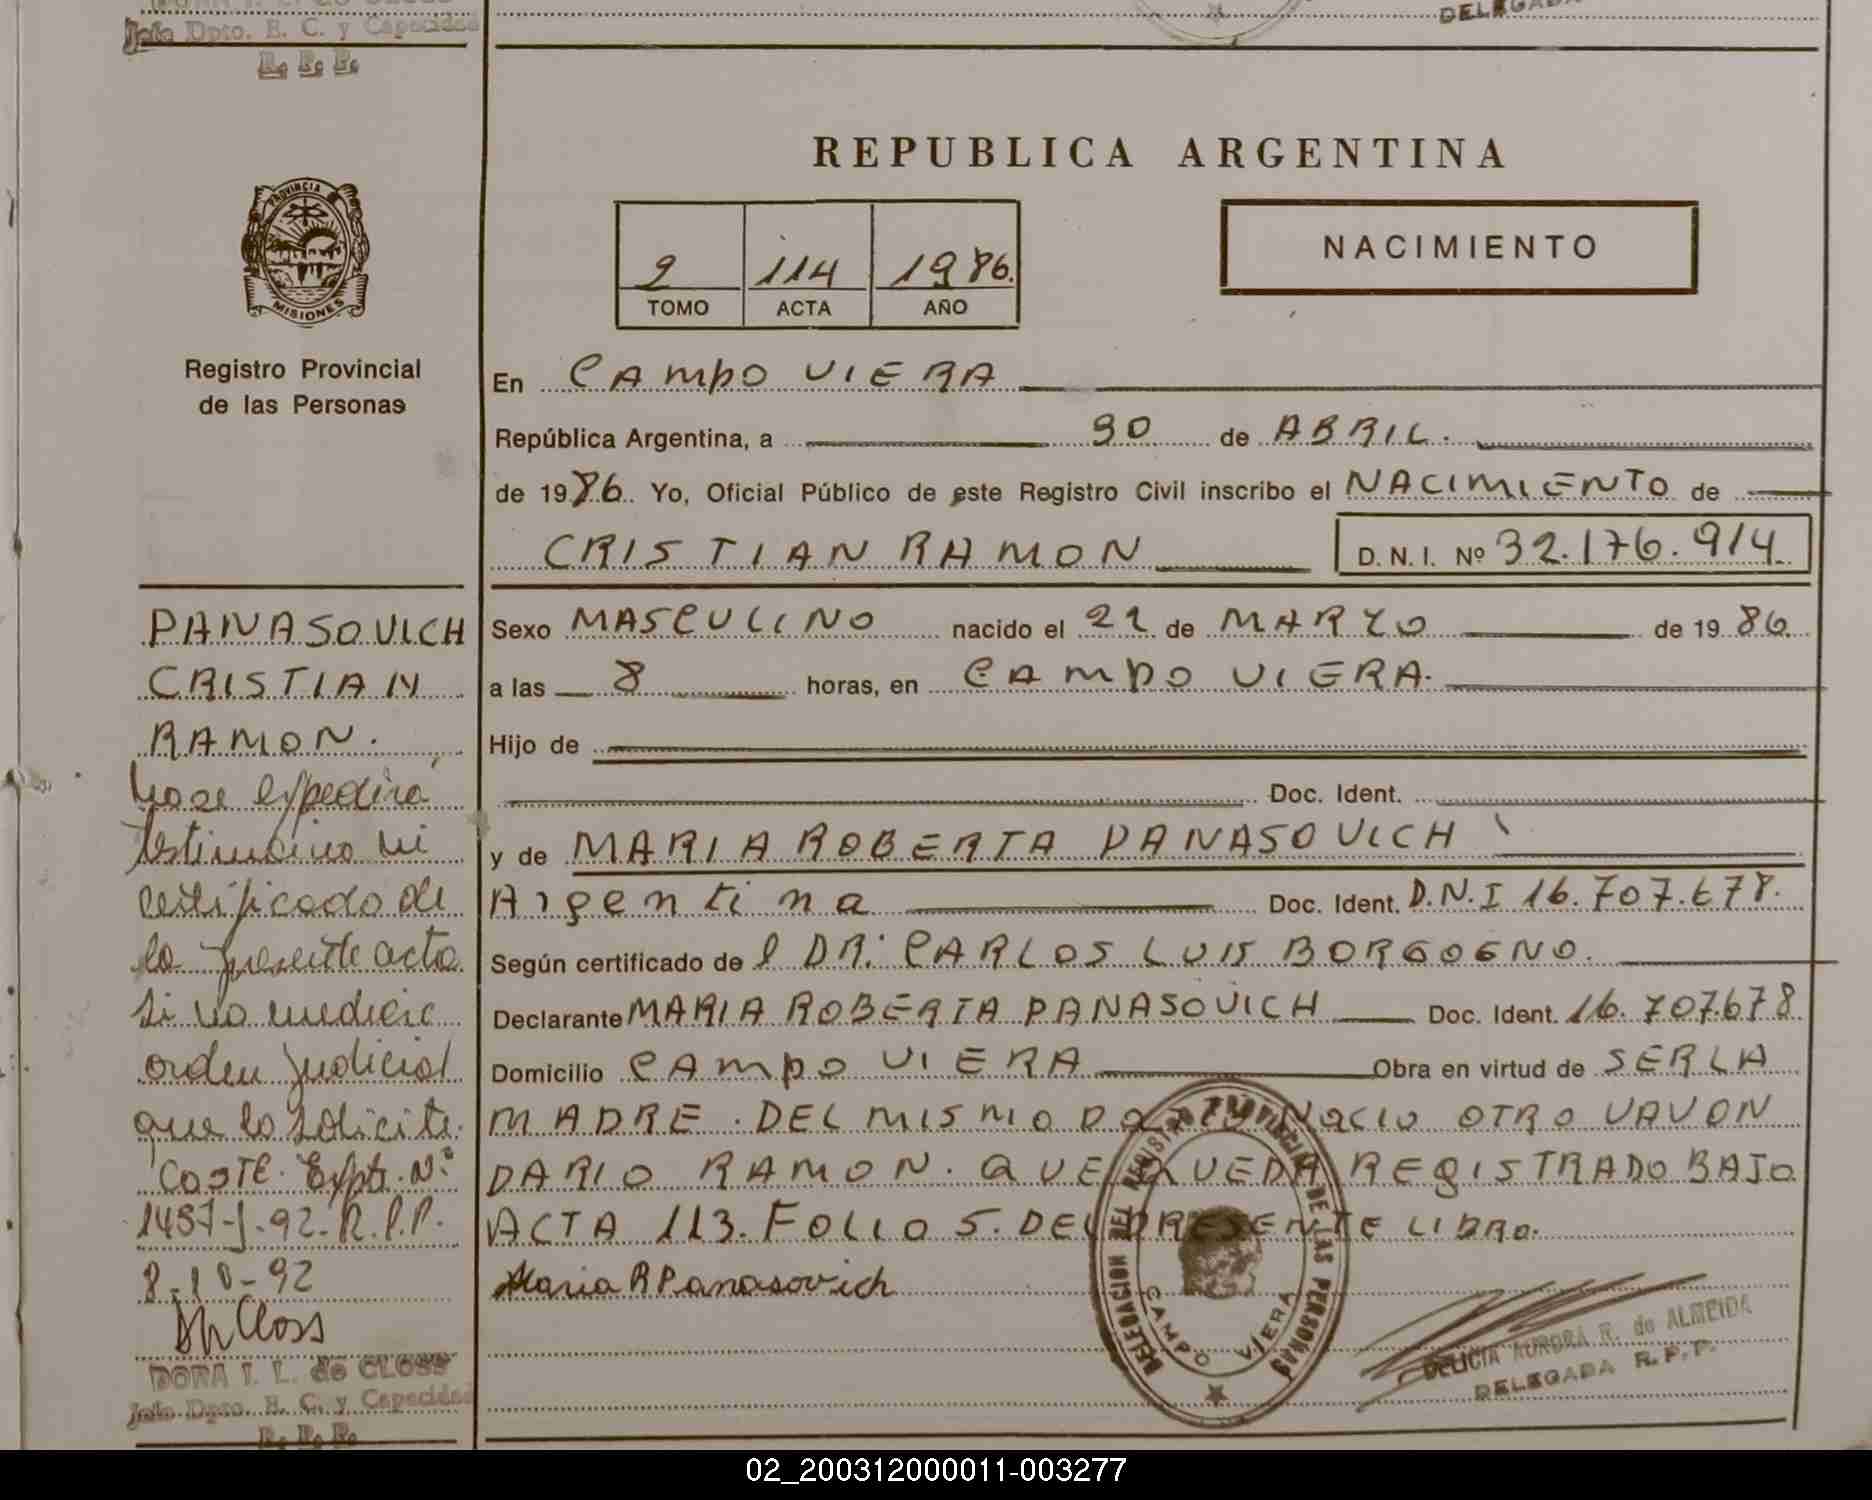 Jefe Dpto. E. C. y Capacidad
R. P. P.
DELEGADA
REPUBLICA ARGENTINA
PROVINCIA
MISIONES
2 114 1986.
TOMO ACTA AÑO
NACIMIENTO
Registro Provincial
de las Personas
En CAMPO VIERA
República Argentina, a 30 de ABRIL.
de 1986. Yo, Oficial Público de este Registro Civil inscribo el NACIMIENTO de
CRISTIAN RAMON D. N. I. Nº 32.176.914
Sexo MASCULINO nacido el 21 de MARZO de 1986.
a las 8 horas, en CAMPO VIERA.
Hijo de
Doc. Ident.
y de MARIA ROBERTA PANASOVICH
Argentina Doc. Ident. D.N.I 16.707.678.
Según certificado de l DR: CARLOS LUIS BORGOGNO.
Declarante MARIA ROBERTA PANASOVICH Doc. Ident. 16.707.678
Domicilio CAMPO VIERA Obra en virtud de SER LA
MADRE. DEL MISMO NACIO OTRO VAVON
DARIO RAMON. QUE QUEDA REGISTRADO BAJO
ACTA 113. FOLIO 5. DEL PRESENTE LIBRO.
Maria R Panasovich
PANASOVICH
CRISTIAN
RAMON.
No se expedirá
testimonio ni
certificado de
la presente acta
si no mediere
orden judicial
que lo solicite.
Coste. Expte. Nº
1457-J-92-R.P.P.
8-10-92
Closs
DORA I. L. de CLOSS
Jefe Dpto. E. C. y Capacidad
R. P. P.
DELEGACION DEL REGISTRO PROVINCIAL DE LAS PERSONAS
CAMPO VIERA
DELICIA AURORA R. de ALMEIDA
DELEGADA R.P.P.
02_200312000011-003277